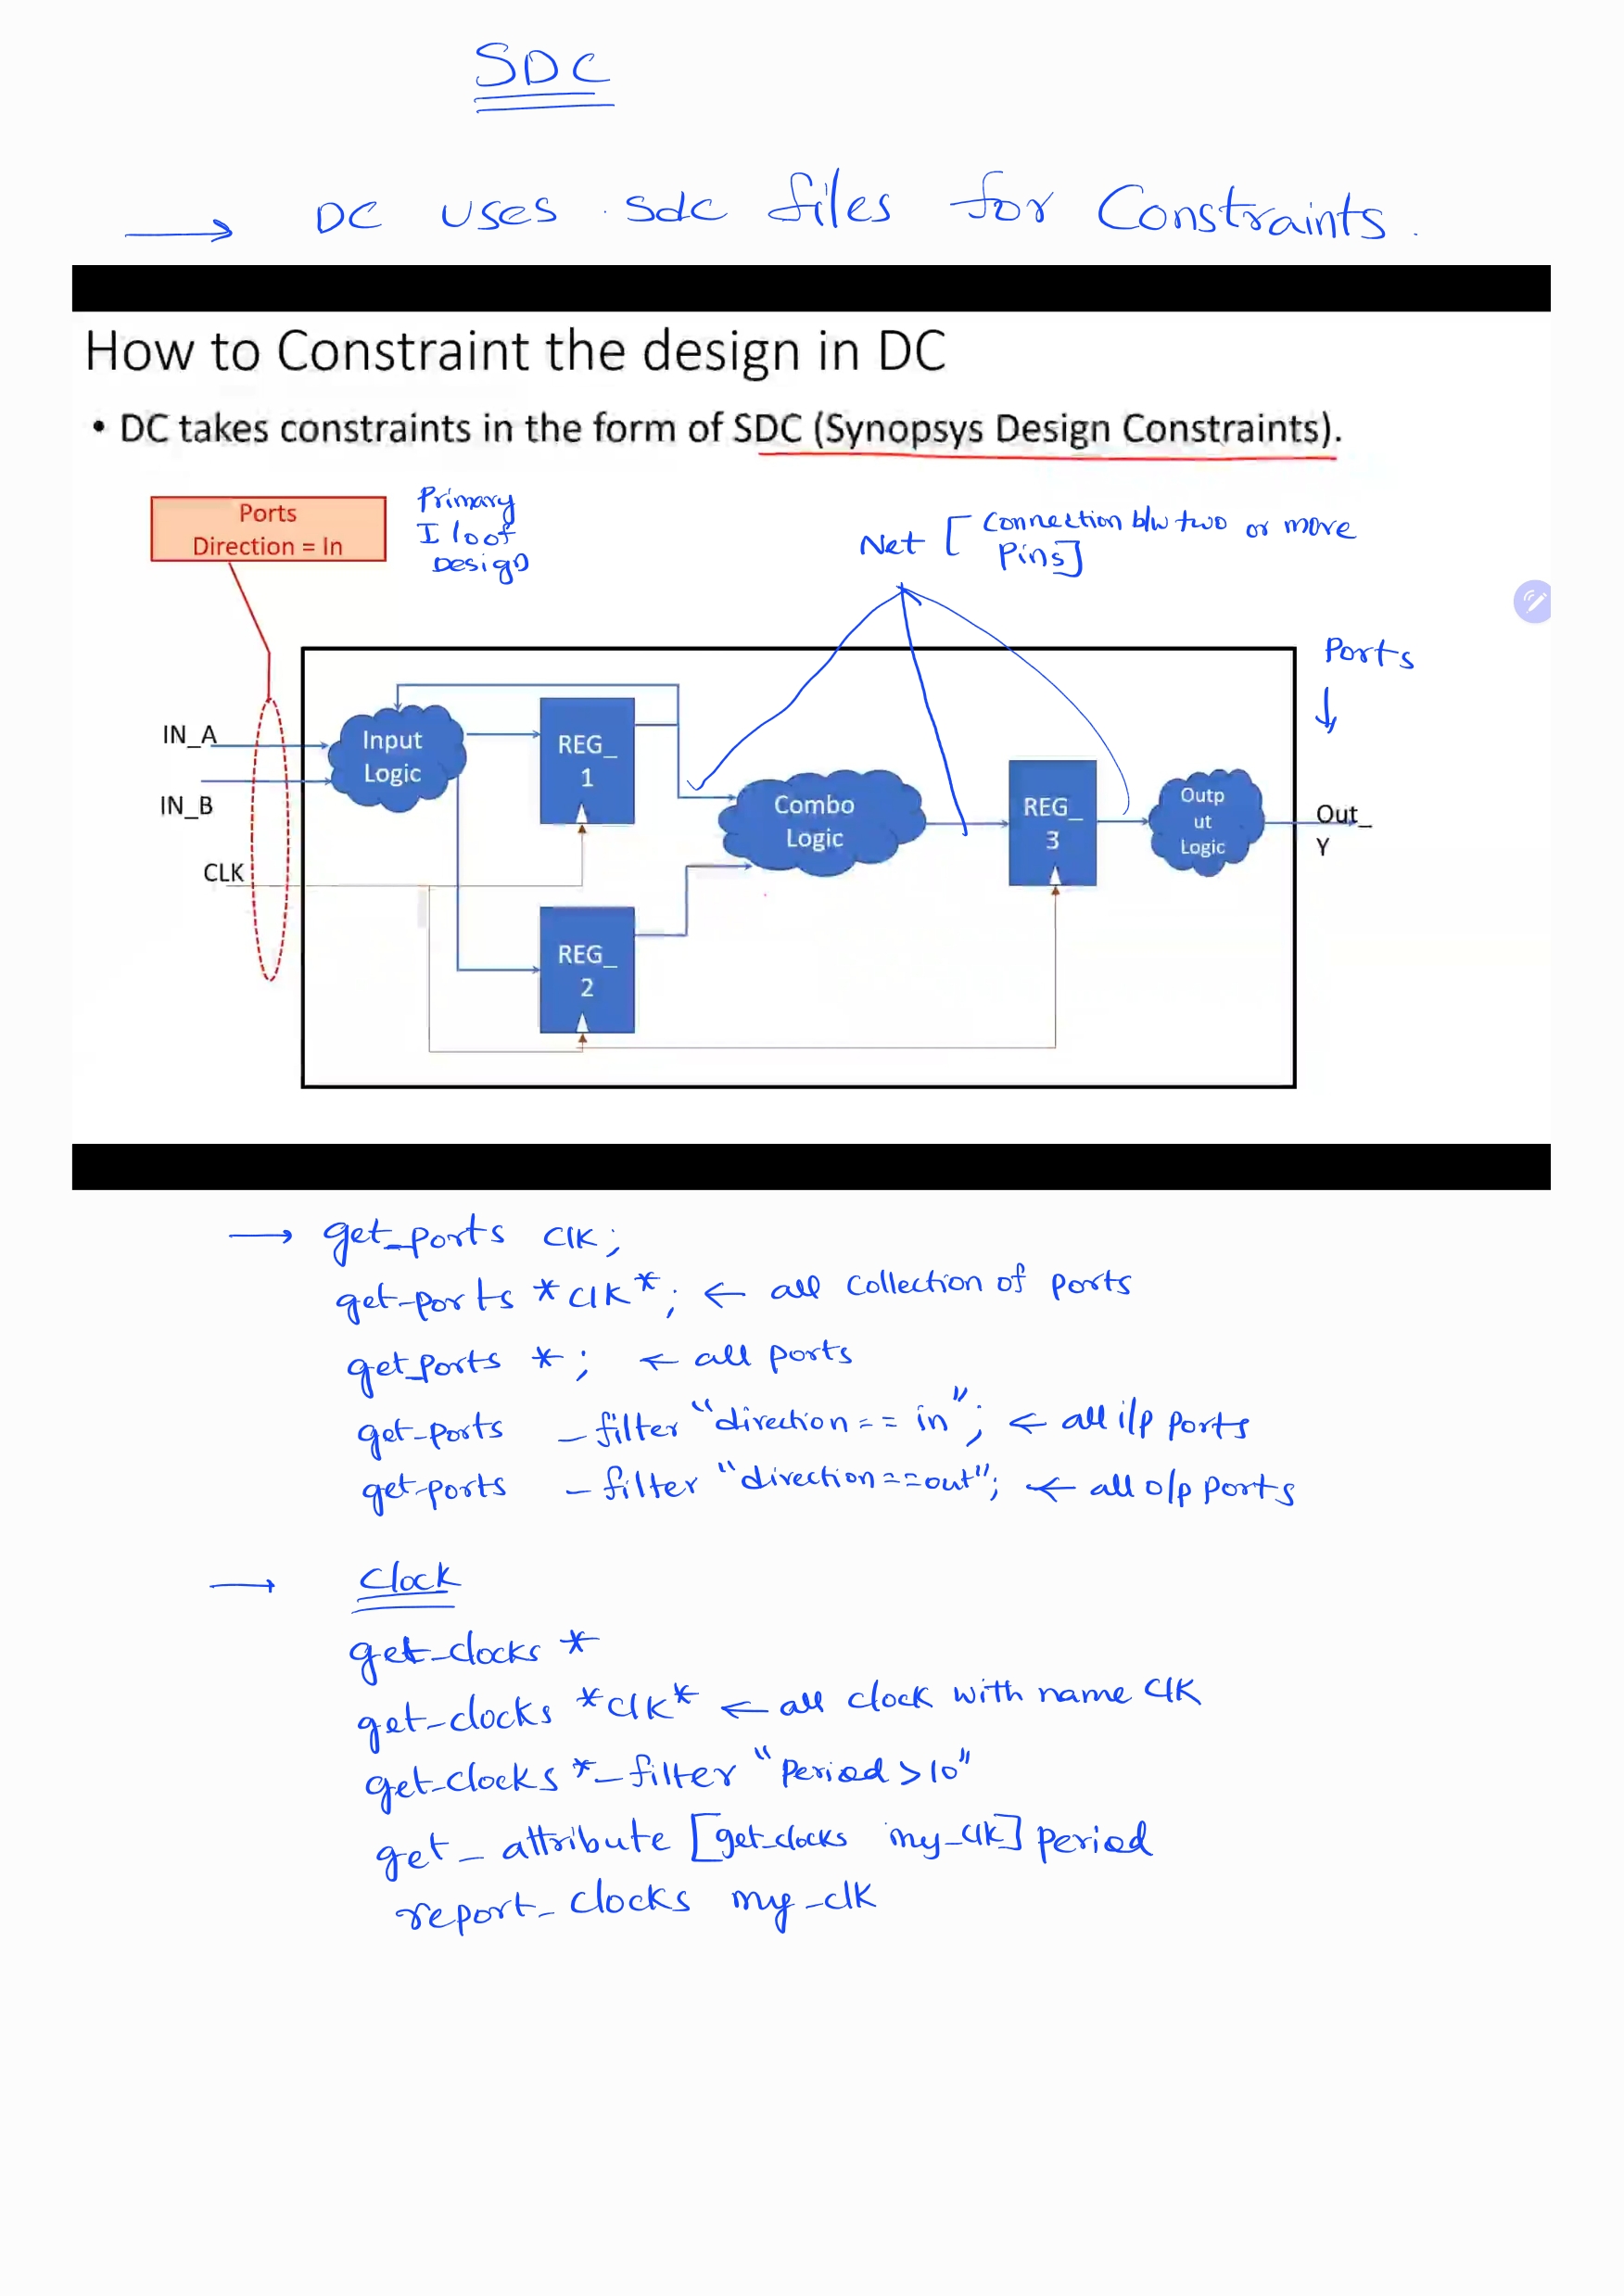 SDC
→ DC uses .sdc files for Constraints.
How to Constraint the design in DC
• DC takes constraints in the form of SDC (Synopsys Design Constraints).
Ports
Direction = In
Primary
I/o of
Design
Net [Connection b/w two or more
Pins]
Ports
↓
IN_A
IN_B
CLK
Input
Logic
REG_
1
REG_
2
Combo
Logic
REG_
3
Outp
ut
Logic
Out_
Y
→ get_ports clk;
get-ports *clk*; ← all collection of ports
get_ports *; ← all ports
get-ports -filter "direction == in"; ← all i/p ports
get-ports -filter "direction==out"; ← all o/p ports
→ Clock
get_clocks *
get-clocks *clk* ← all clock with name clk
get-clocks *-filter "Period>10"
get_attribute [get_clocks my_clk] period
report_clocks my_clk